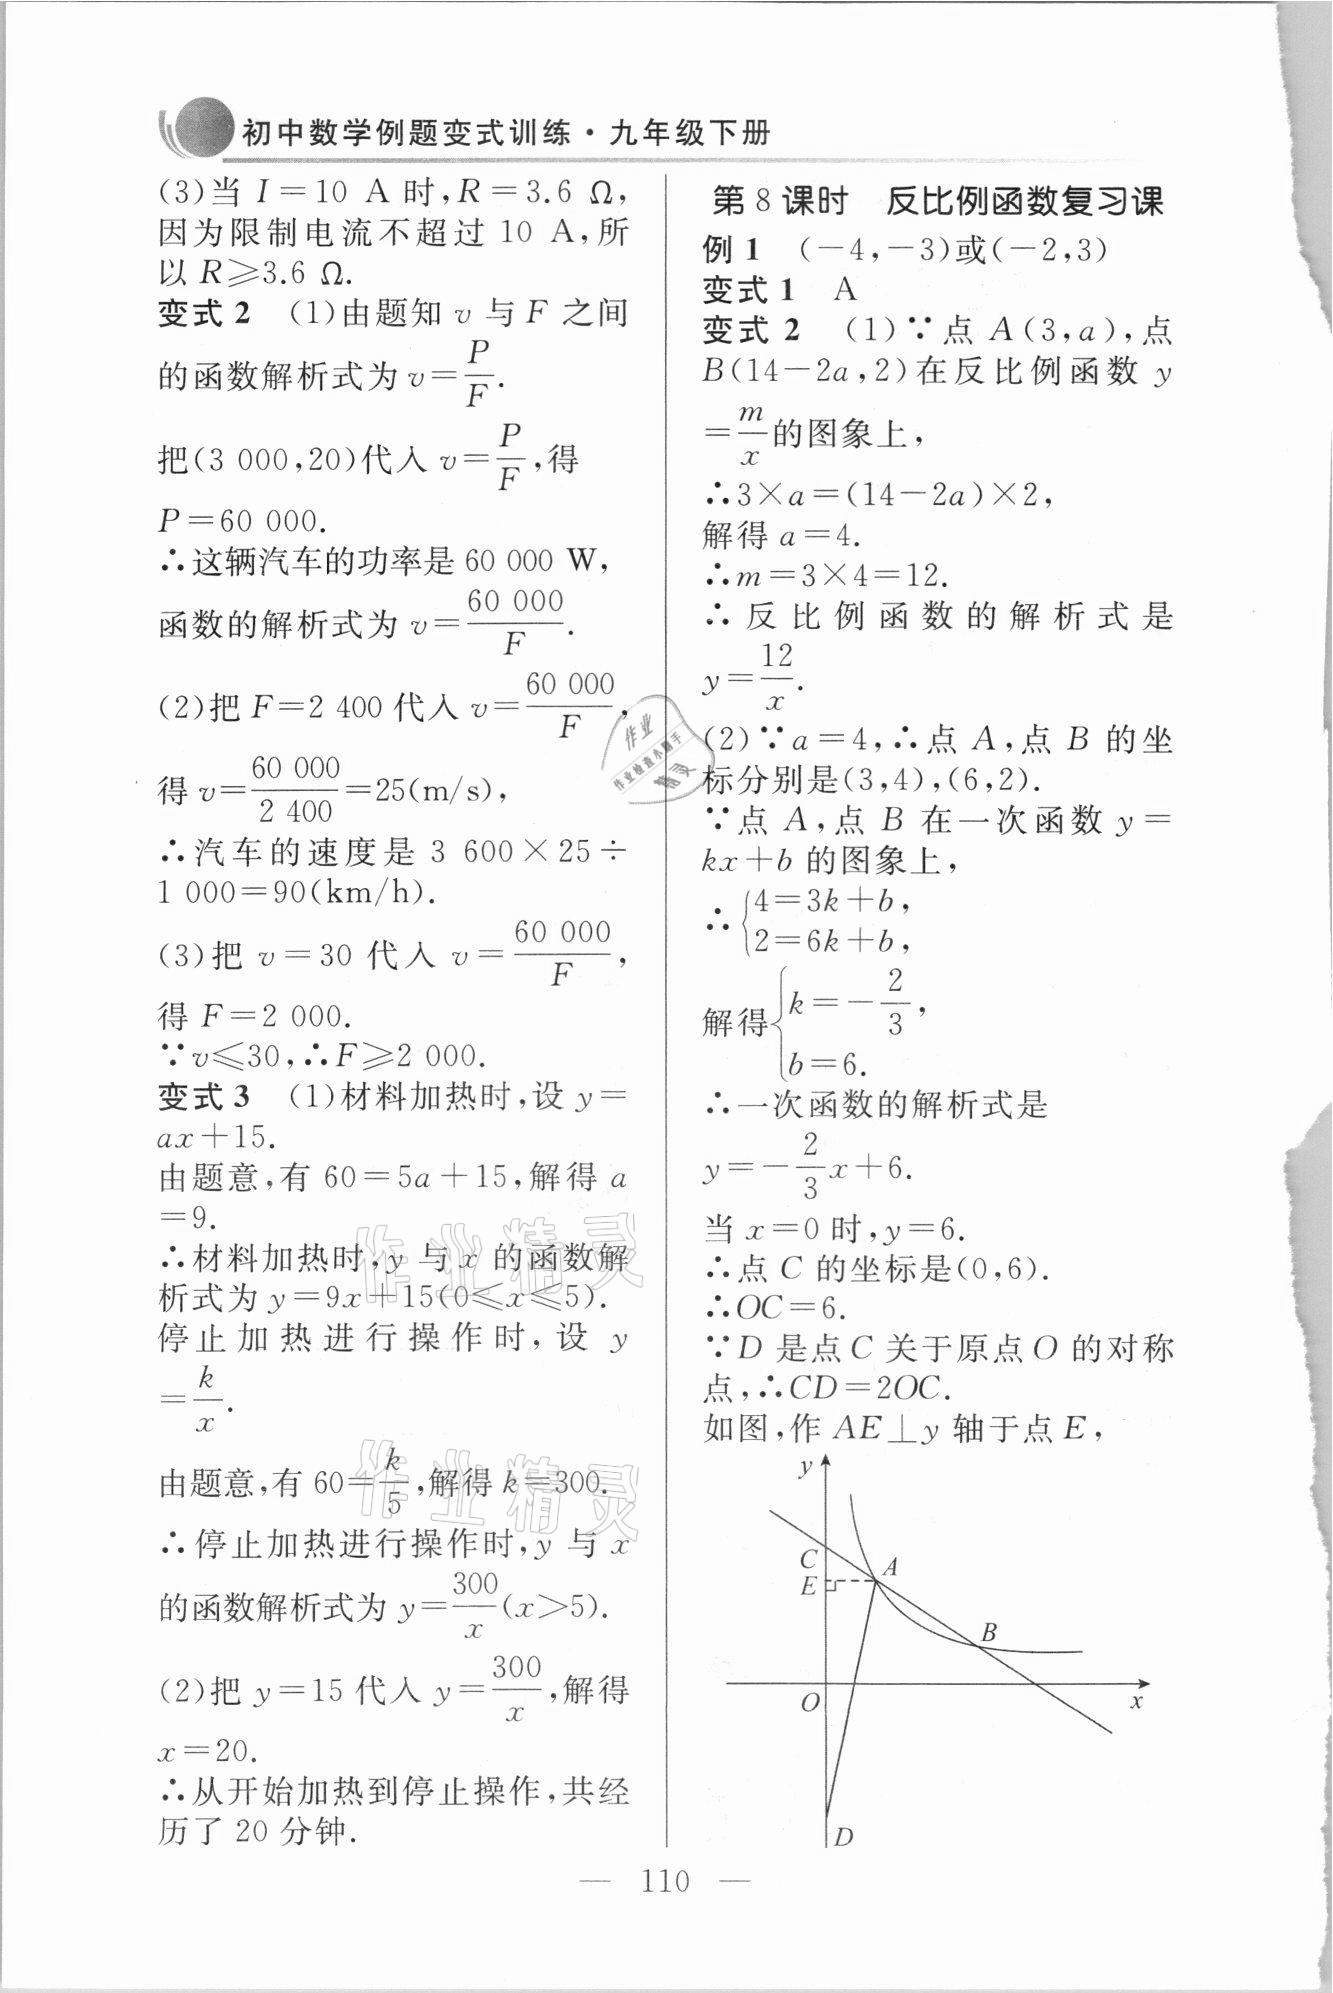 初中数学例题变式训练·九年级下册
(3)当 I=10 A 时,R=3.6 Ω,
因为限制电流不超过 10 A,所
以 R⩾3.6 Ω.
变式 2 (1)由题知 v 与 F 之间
的函数解析式为 v=P/F.
把(3 000,20)代入 v=P/F,得
P=60 000.
∴这辆汽车的功率是 60 000 W,
函数的解析式为 v=60 000/F.
(2)把 F=2 400 代入 v=60 000/F,
得 v=60 000/2 400=25(m/s),
∴汽车的速度是 3 600×25÷
1 000=90(km/h).
(3)把 v=30 代入 v=60 000/F,
得 F=2 000.
∵v⩽30,∴F⩾2 000.
变式 3 (1)材料加热时,设 y=
ax+15.
由题意,有 60=5a+15,解得 a
=9.
∴材料加热时,y 与 x 的函数解
析式为 y=9x+15(0⩽x⩽5).
停止加热进行操作时,设 y
=k/x.
由题意,有 60=k/5,解得 k=300.
∴停止加热进行操作时,y 与 x
的函数解析式为 y=300/x(x>5).
(2)把 y=15 代入 y=300/x,解得
x=20.
∴从开始加热到停止操作,共经
历了 20 分钟.
第 8 课时 反比例函数复习课
例 1 (-4,-3)或(-2,3)
变式 1 A
变式 2 (1)∵点 A(3,a),点
B(14-2a,2)在反比例函数 y
=m/x的图象上,
∴3×a=(14-2a)×2,
解得 a=4.
∴m=3×4=12.
∴反比例函数的解析式是
y=12/x.
(2)∵a=4,∴点 A,点 B 的坐
标分别是(3,4),(6,2).
∵点 A,点 B 在一次函数 y=
kx+b 的图象上,
∴{4=3k+b,
2=6k+b,
解得{k=-2/3,
b=6.
∴一次函数的解析式是
y=-2/3x+6.
当 x=0 时,y=6.
∴点 C 的坐标是(0,6).
∴OC=6.
∵D 是点 C 关于原点 O 的对称
点,∴CD=2OC.
如图,作 AE⊥y 轴于点 E,
y
C
A
E
B
O
x
D
作业
作业检查小助手
精灵
作业精灵
作业精灵
— 110 —